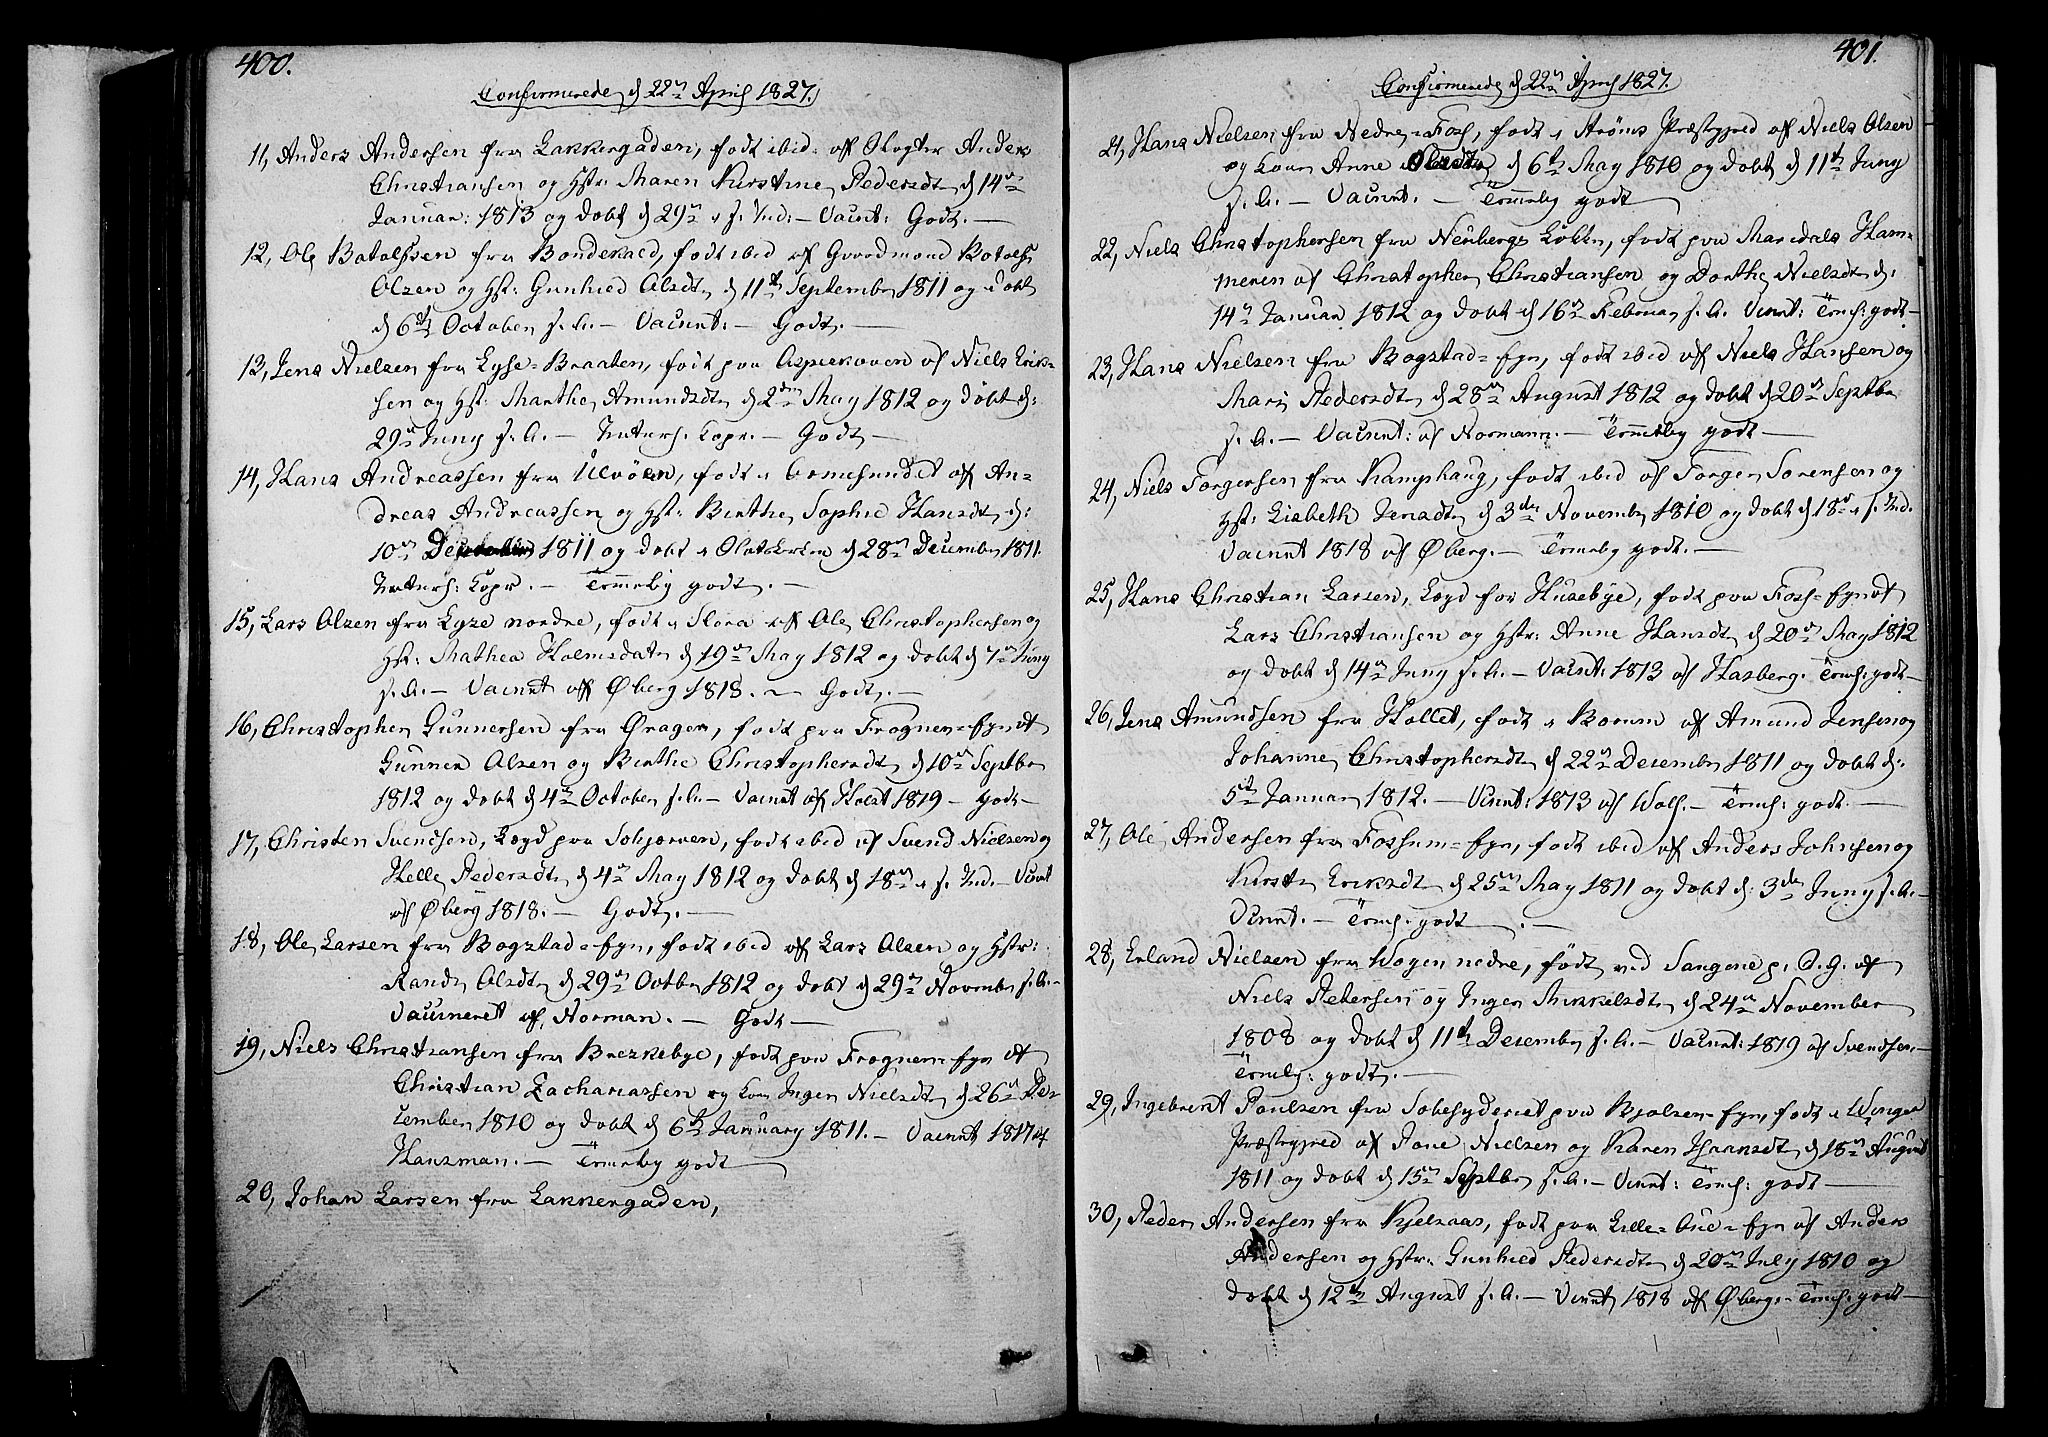 400.
Confirmerede d 22n April 1827.
11, Anders Andersen fra Lakkergaden, født ibid. af Slagter Anders
Christiansen og Hstr: Maren Kirstine Pedersdt d 14n
Januar: 1813 og døbt d 29n s. Md: – Vaccint: Godt. –
12, Ole Botolfsen fra Bonderud, født ibid af Gaardmand Botolf
Olsen og Hst: Gunhild Olsdt d 11te September 1811 og døbt
d 6te October s. A. – Vaccint: – Godt. –
13, Jens Nielsen fra Lyse-Braaten, født paa Aspeskoven af Niels Erik-
sen og Hst: Marthe Amundsdt d 2den May 1812 og døbt d:
29n Juny s. A. – Naturl. Kopr. – Godt –
14, Hans Andreassen fra Ulvøen, født i Ormesundet af An-
dreas Andreassen og Hst: Birthe Sophie Hansdt d:
10n 1811 og døbt i d 28n December 1811.
Naturl: Kopr. – Temmelig godt. –
15, Lars Olsen fra Lyse nordre, født i af Ole Christophersen og
Hst: Mathea Holmsdatr d 19n May 1812 og døbt d 7n Juny
s. A. – Vaccint af Øberg 1818. – Godt. –
16, Christopher Gunnersen fra Øragen, født paa Frogner-Egn af
Gunner Olsen og Birthe Christophersdt d 10n Septbr
1812 og døbt d 4n October s. A. – Vaccint af Holst 1819 – godt –
17, Christen Svendsen, Logd paa Solhjørnen, født ibid af Svend Nielsen og
Helle Pedersdt d 4n May 1812 og døbt d 18n s. Md. – Vccint
af Øberg 1818. – Godt. –
18, Ole Larsen fra Bogstad-Egn, født ibid af Lars Olsen og Hstr:
Randi Olsdt d 29n Octbr 1812 og døbt d 29n Novembr s. A. –
Vaccineret af Norman. – Godt –
19, Niels Christiansen fra Brezkebye, født paa Frogner-Egn af
Christian Zachariassen og Kone Inger Nielsdt d 26n De-
cember 1810 og døbt d 6te January 1811. – Vaccint 1817 af
Hansman. – Temmelig godt –
20, Johan Larsen fra Lakkergaden,
401.
Confirmerede d 22n April 1827.
21, Hans Nielsen fra Nedre-Foss, født i Strøms Præstegjeld af Niels Olsen
og Kone Anne Olsdtr d 6te May 1810 og døbt d 11te Juny
s. A. – Vaccint. – Temmelig godt –
22, Niels Christophersen fra Neubergs Løkke, født paa Maridals Ham-
meren af Christopher Christiansen og Dorthe Nielsdt d:
14n Januar 1812 og døbt d 16n Februar s. A. Vccint: Teml: godt –
23, Hans Nielsen fra Bogstad-Egn, født ibid af Niels Hansen og
Mari Pedersdt d 28n August 1812 og døbt d 20n Septbr
s. A. – Vaccint: af Normann. – Temmelig godt –
24, Niels Torgersen fra Kamphaug, født ibid af Torger Sørensen og
Hst: Lisbeth Jensdt d 3die November 1810 og døbt d 18n s. Md.
Vaccint 1818 af Øberg. – Temmelig godt. –
25, Hans Christian Larsen, Logd fra Husebye, født paa Foss-Egn af
Lars Christiansen og Hstr: Anne Hansdt d 20n May 1812
og døbt d 14n Juny s. A. – Vaccint: 1813 af Hasberg. Teml: godt –
26, Jens Amundsen fra Hollet, født i Borum af Amund Jensen og
Johanne Christophersdt d 22n Decembr 1811 og døbt d:
5te Januar 1812. – Vccint: 1813 af Wolf. – Teml: godt. –
27, Ole Andersen fra Fossum-Egn, født ibid af Anders Johnsen og
Kirsti Eriksdt d 25n May 1811 og døbt d: 3die Juny s. A. –
Vccint. – Teml: godt –
28, Erland Nielsen fra Wøyen nedre, født ved Sangene p: S. G. af
Niels Petersen og Inger Mikkelsdt d 24n November
1808 og døbt d 11te Decembr s. A. – Vaccint: 1819 af Svendsen. –
Teml: godt. –
29, Ingebreet Poulsen fra paa Bjølsen-Egn, født i Winger
Præstegjeld af Poue Nielsen og Karen Hansdt d 18n August
1811 og døbt d 15n Septbr s. A. – Vccint: Teml: godt –
30, Peder Andersen fra Kjelsaas, født paa Lille-Aue-Egn af Anders
Andersen og Hstr: Gunhild Pedersdt d 20n July 1810 og
døbt d 12te August s. A. – Vccint 1818 af Øberg. – Teml: godt –